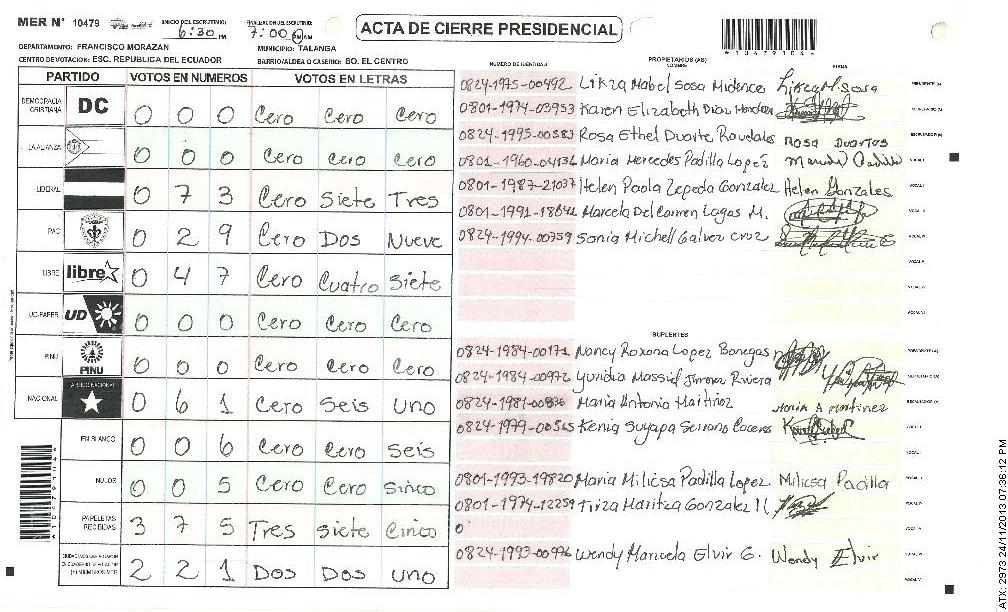 MER N° 10479
INICIO DEL ESCRUTINIO: 6:30 PM
FINALIZACION DEL ESCRUTINIO: 7:00 PM AM
ACTA DE CIERRE PRESIDENCIAL
DEPARTAMENTO: FRANCISCO MORAZAN
MUNICIPIO: TALANGA
CENTRO DE VOTACION: ESC. REPUBLICA DEL ECUADOR
BARRIO/ALDEA O CASERIO: BO. EL CENTRO
PARTIDO VOTOS EN NUMEROS VOTOS EN LETRAS
DEMOCRACIA CRISTIANA DC 0 0 0 Cero Cero Cero
LA ALIANZA 0 0 0 Cero Cero Cero
LIBERAL 0 7 3 Cero Siete Tres
PAC 0 2 9 Cero Dos Nueve
LIBRE libre 0 4 7 Cero Cuatro Siete
UD-FAPER UD 0 0 0 Cero Cero Cero
PINU PINU 0 0 0 Cero Cero Cero
NACIONAL 0 6 1 Cero Seis Uno
EN BLANCO 0 0 6 Cero Cero Seis
NULOS 0 0 5 Cero Cero Sinco
PAPELETAS RECIBIDAS 3 7 5 Tres Siete Cinco
2 2 1 Dos Dos uno
PROPIETARIOS (AS)
NUMERO DE IDENTIDAD NOMBRE FIRMA
0824-1975-00492
0801-1974-03953 Karen Elizabeth Diaz
0824-1995-00583 Rosa Ethel Duarte Raudales Rosa Duartes
0801-1960-04136 Maria Mercedes Padilla Lopez
0801-1987-21037 Helen Paola Zepeda Gonzalez Helen Gonzales
Marcela Del Carmen Lagas M.
0824-1994-00759 Sonia Michell Galvez Cruz
SUPLENTES
0824-1984-00171 Nancy Roxana Lopez Banegas
0824-1984-00972 Jimenez Rivera
Maria Antonia Maria A Martinez
0824-1979-00565 Kenia Suyapa Serrano
0801-1993-19820 Maria Milicsa Padilla Lopez Milicsa Padilla
0801-1974-12259 Tirza Maritza Gonzalez
0
0824-1993-00976 Wendy Manuela Elvir G. Wendy Elvir
ATX: 2973 24/11/2013 07:36:12 PM